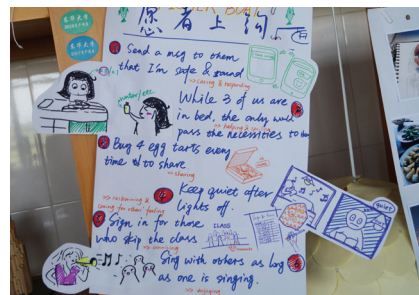 愿者上钩
Send a msg to them
that I'm safe & sound
>> caring & responding
water/etc.
While 3 of us are
in bed, the only walk
pass the necessities to them
>> helping &
Buy 4 egg tarts every
time to share
>> sharing
Keep quiet after
lights off.
>> restraining &
caring for others' feeling
Sign in for those
who skip the class
CLASS
QUIET
Sing with others as long
as one is singing.
>> enjoying